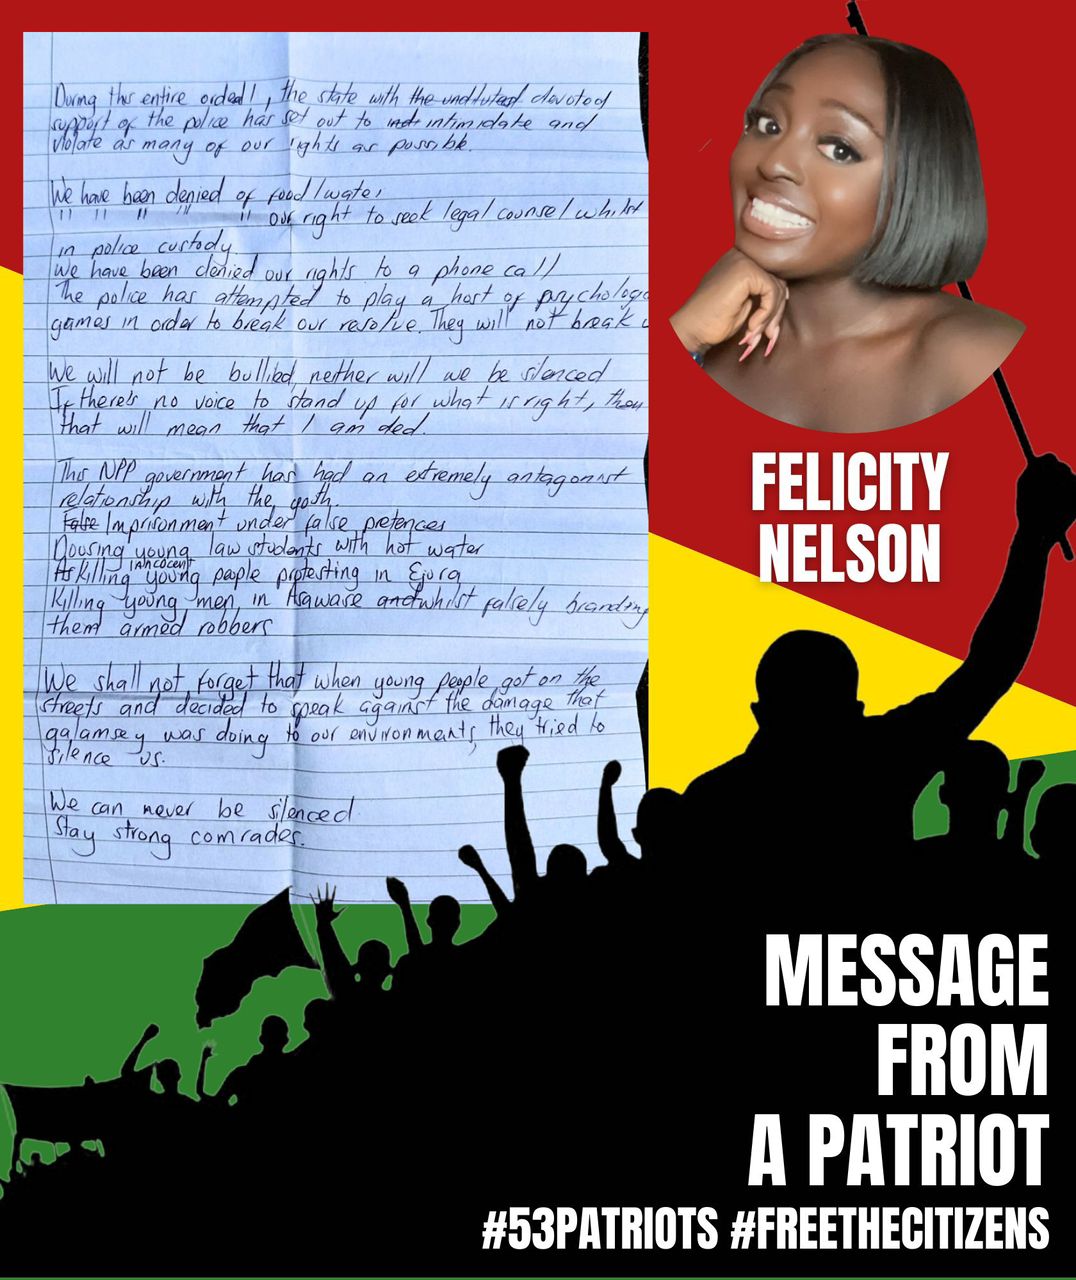 During this entire ordeal, the state with the undiluted devoted
support of the police has set out to ind intimidate and
violate as many of our rights as possible.
We have been denied of food/water,
" " " " " our right to seek legal counsel whilst
in police custody.
We have been denied our rights to a phone call
The police has attempted to play a host of psycholog
games in order to break our resolve. They will not break
We will not be bullied, neither will we be silenced
If there's no voice to stand up for what is right, then
that will mean that I am ded.
This NPP government has had an extremely antagonist
relationship with the youth.
False Imprisonment under false pretences
Dousing young law students with hot water
Killing inncocent young people protesting in Ejura
Killing young men in Asawase and whilst falsely branding
them armed robbers
We shall not forget that when young people got on the
streets and decided to speak against the damage that
galamsey was doing to our environments, they tried to
silence us.
We can never be silenced
Stay strong comrades.
FELICITY
NELSON
MESSAGE
FROM
A PATRIOT
#53PATRIOTS #FREETHECITIZENS